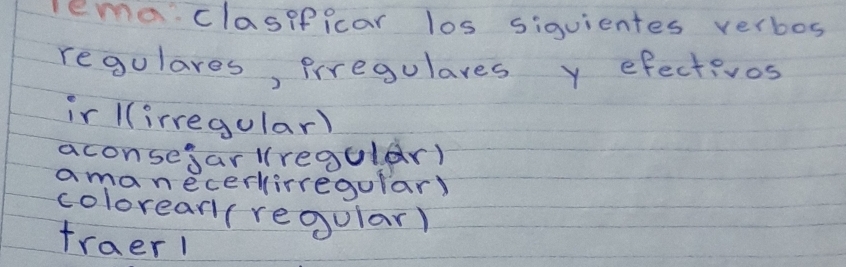 Tema: Clasificar los siguientes verbos
regulares, irregulares y efectivos
ir |(irregular)
aconsejar |(regular)
amanecer|(irregular)
colorear|(regular)
traer |